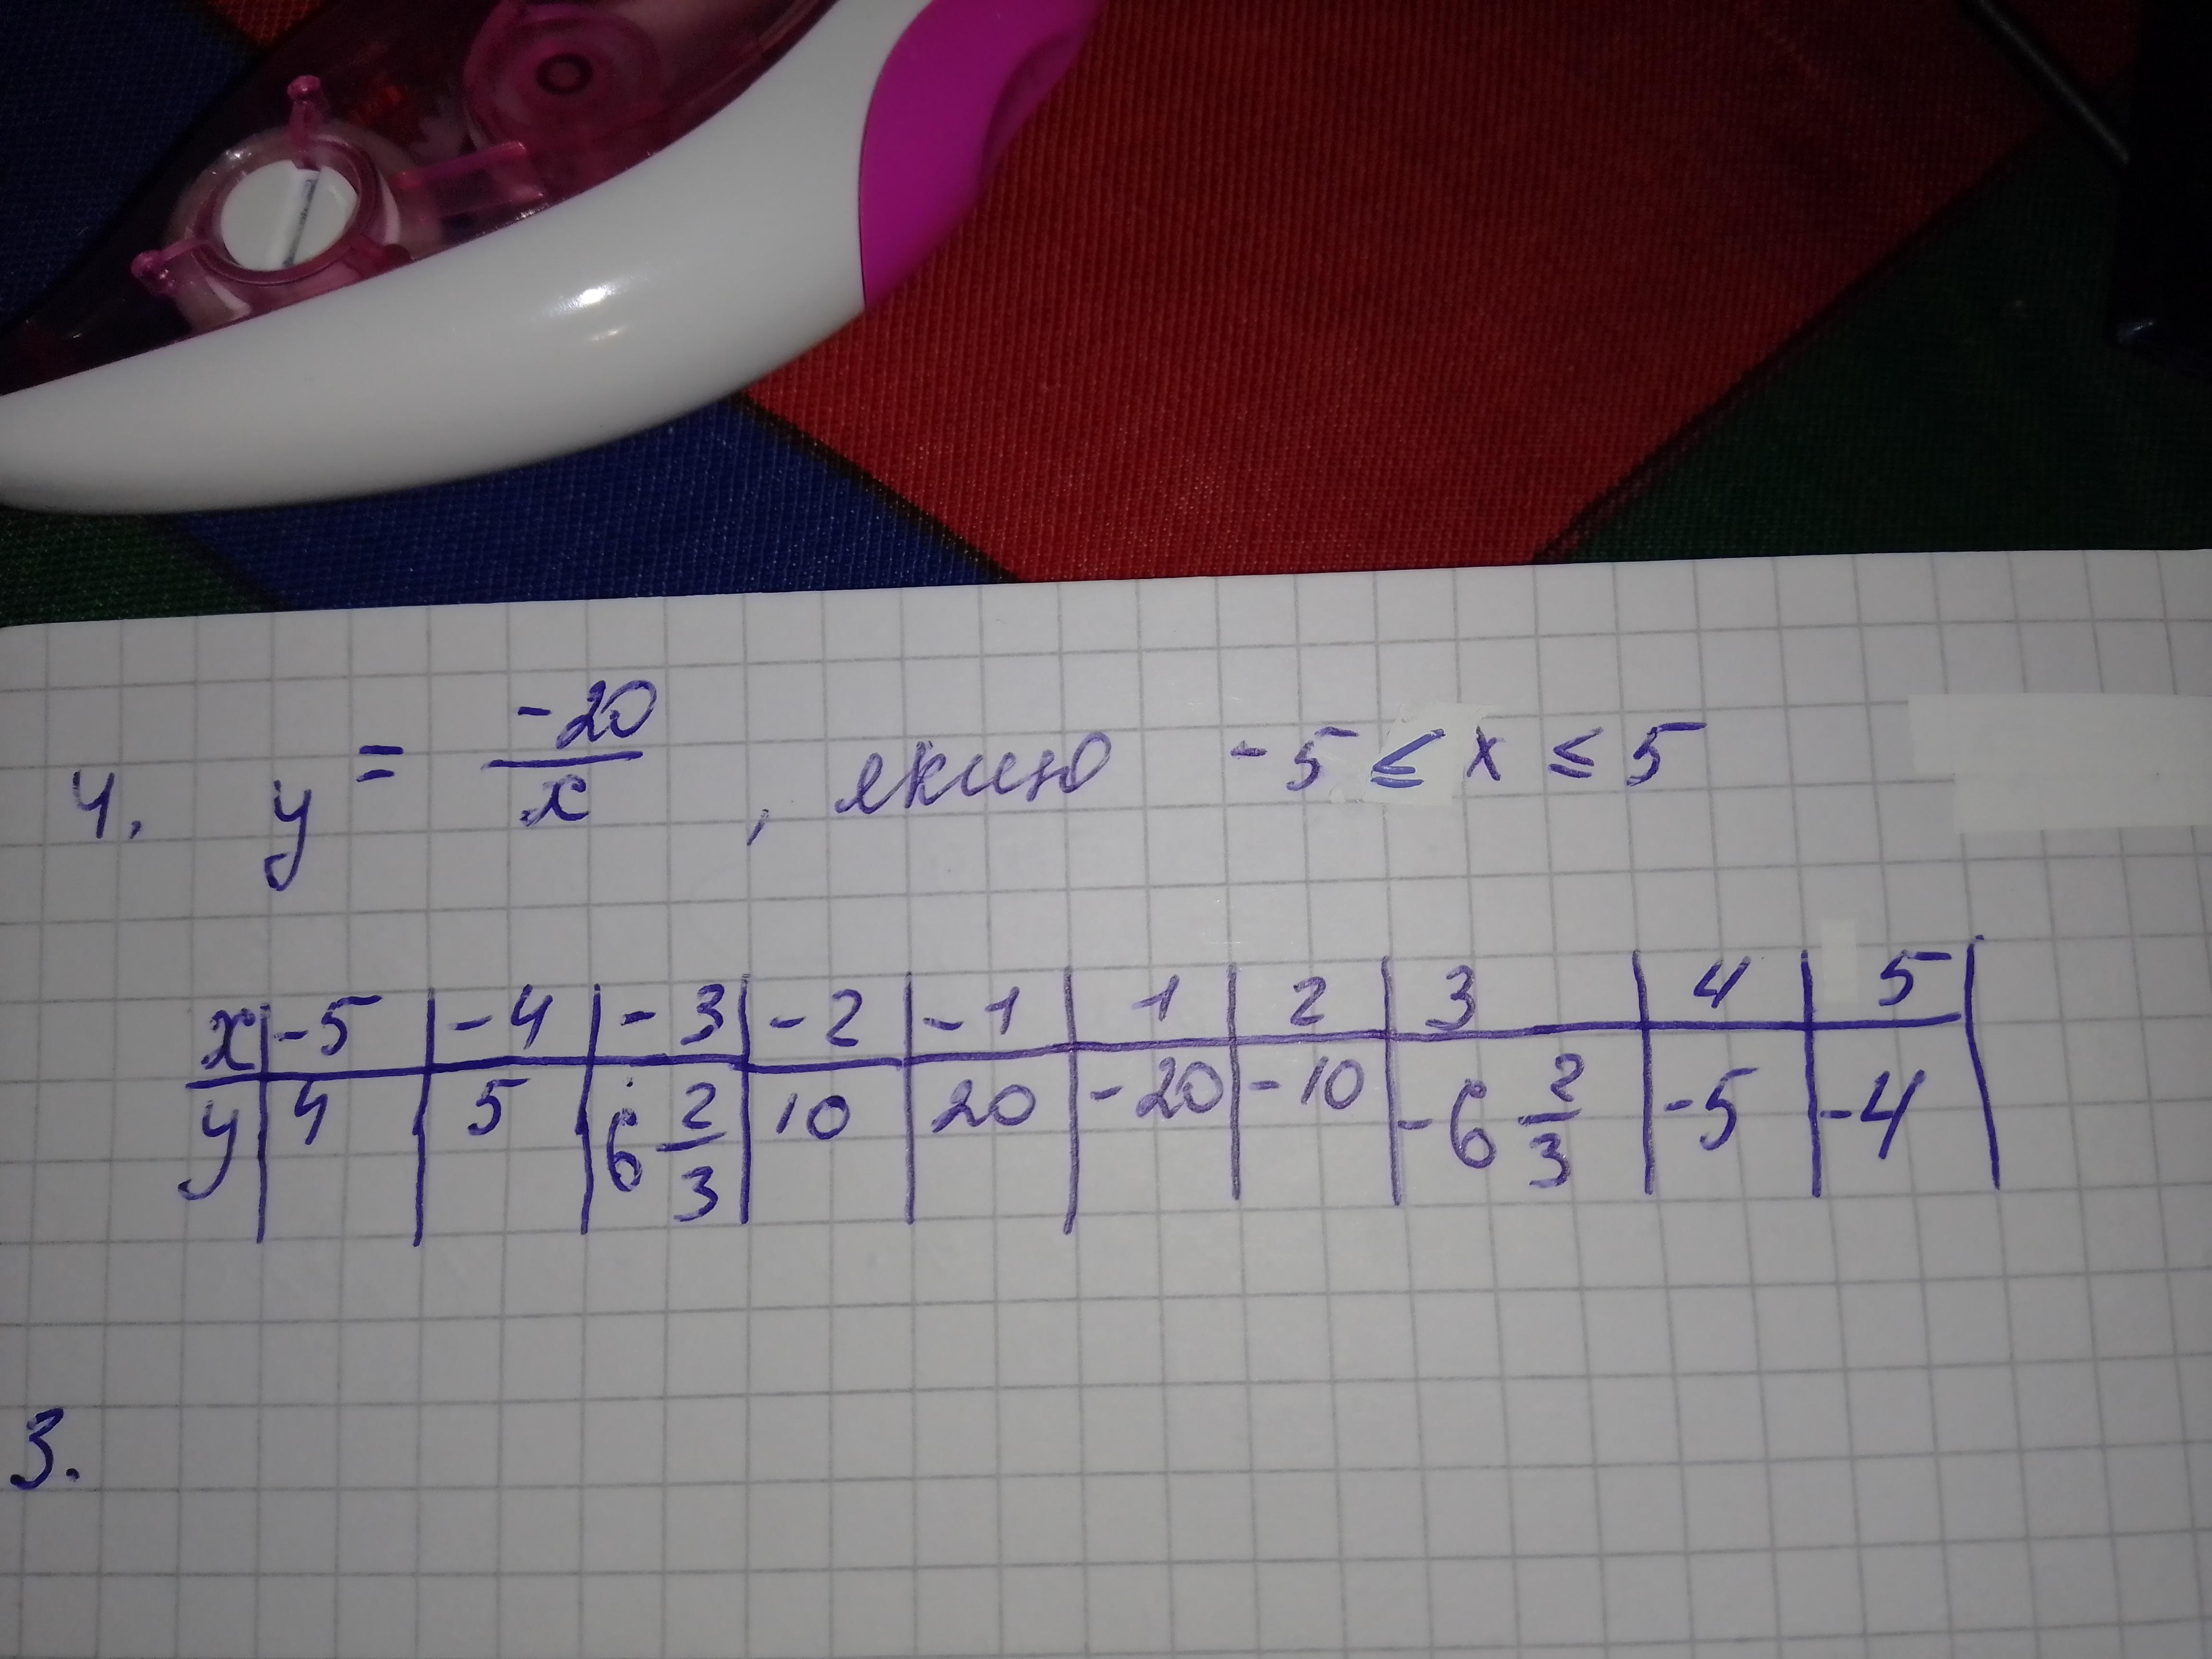 4. y = -20/x , якщо -5 ≤ x ≤ 5
x | -5 | -4 | -3 | -2 | -1 | 1 | 2 | 3 | 4 | 5 |
y | 4 | 5 | 6 2/3 | 10 | 20 | -20 | -10 | -6 2/3 | -5 | -4 |
3.